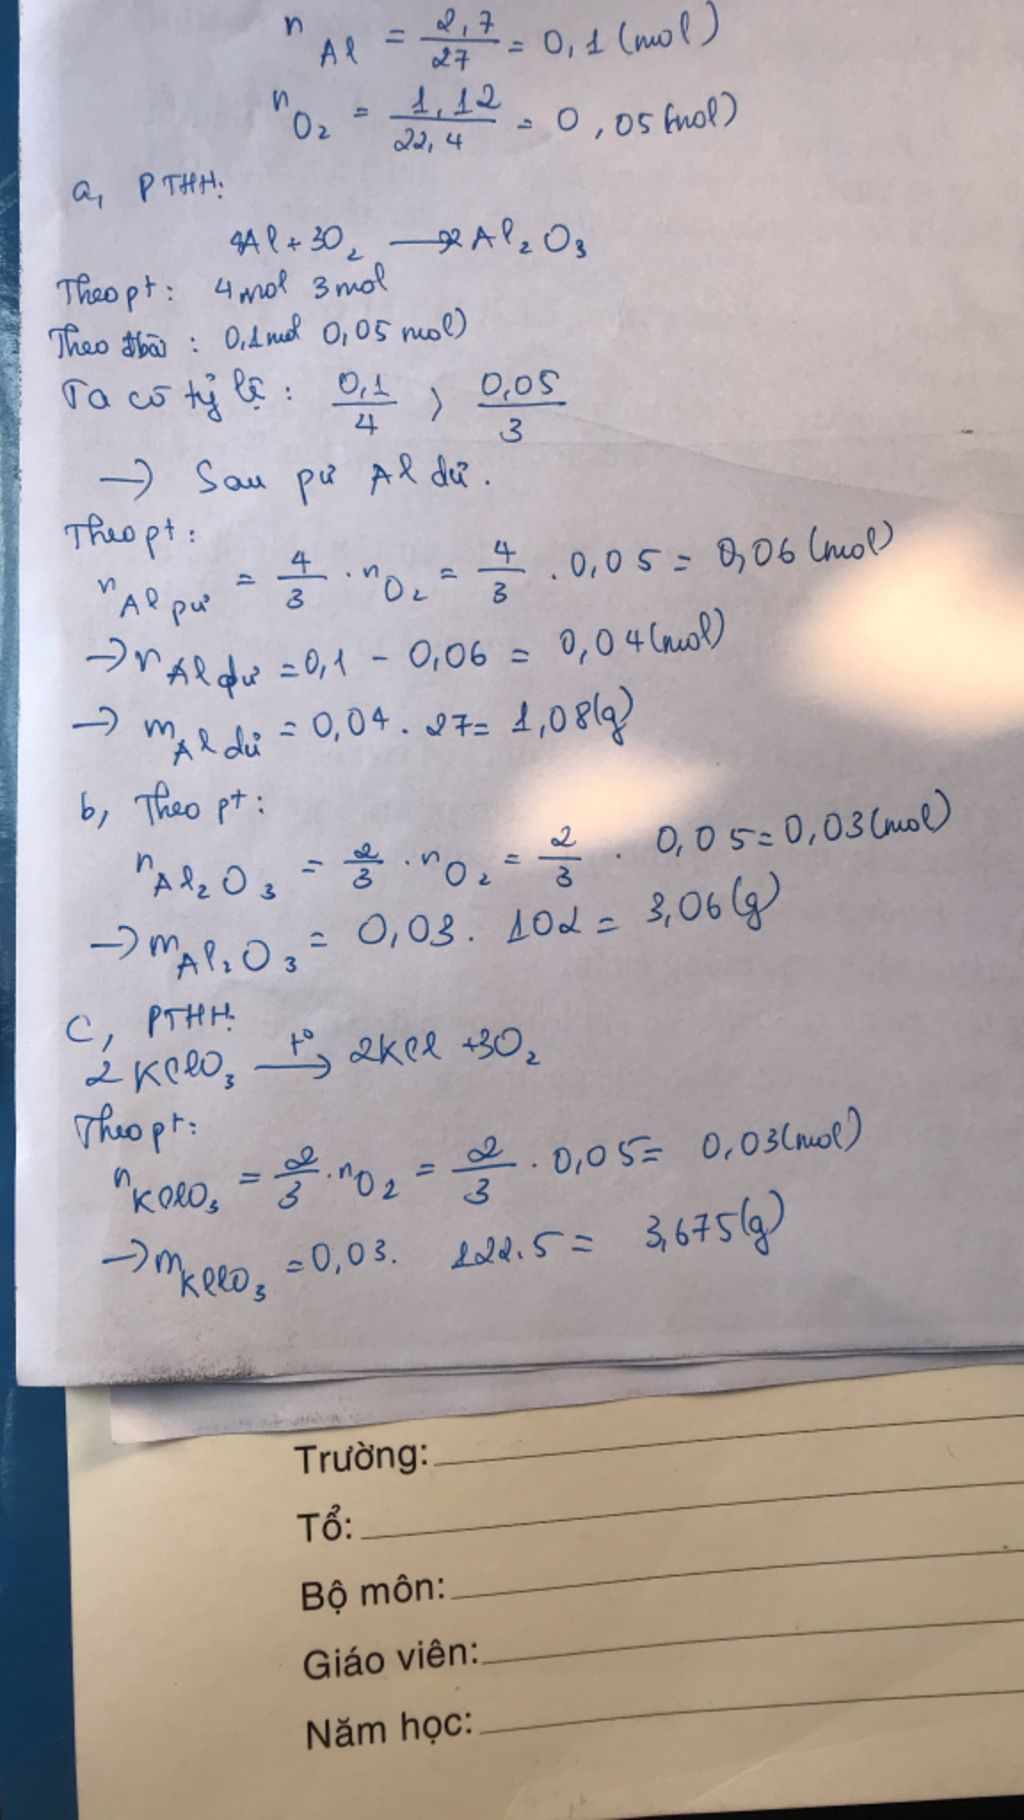 n Al = 2,7/27 = 0,1 (mol)
n O₂ = 1,12/22,4 = 0,05 (mol)
a, PTHH:
4Al + 3O₂ → 2Al₂O₃
Theo pt: 4mol 3mol
Theo đbài: 0,1mol 0,05 mol)
Ta có tỷ lệ: 0,1/4 > 0,05/3
→ Sau pư Al dư.
Theo pt:
n Al pư = 4/3 . n O₂ = 4/3 . 0,05 = 0,06 (mol)
→ n Al dư = 0,1 - 0,06 = 0,04 (mol)
→ m Al dư = 0,04 . 27 = 1,08 (g)
b, Theo pt:
n Al₂O₃ = 2/3 . n O₂ = 2/3 . 0,05 = 0,03 (mol)
→ m Al₂O₃ = 0,03 . 102 = 3,06 (g)
c, PTHH:
2KClO₃ —t°→ 2KCl + 3O₂
Theo pt:
n KClO₃ = 2/3 . n O₂ = 2/3 . 0,05 = 0,03 (mol)
→ m KClO₃ = 0,03. 122.5 = 3,675 (g)
Trường:
Tổ:
Bộ môn:
Giáo viên:
Năm học: